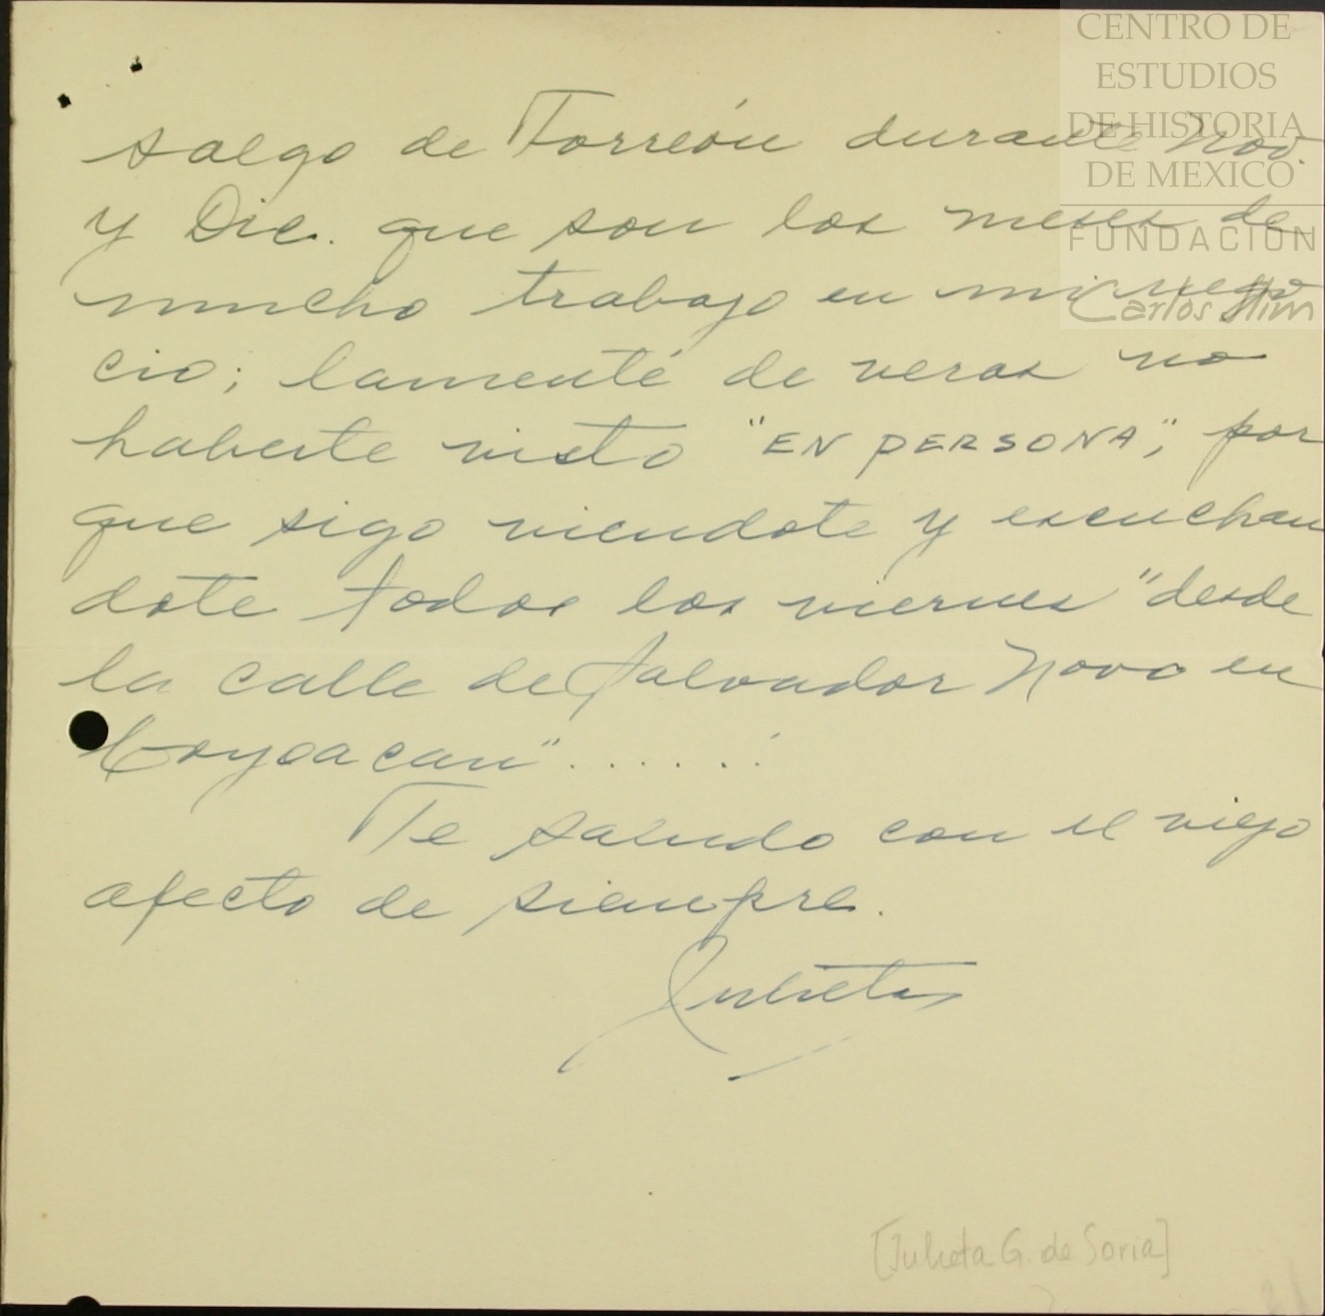 CENTRO DE
ESTUDIOS
DE HISTORIA
DE MEXICO
FUNDACIÓN
Carlos Slim
salgo de Torreón durante Nov.
y Dic. que son los meses de
mucho trabajo en mi nego
cio; lamenté de veras no
haberte visto "EN PERSONA", por
que sigo viendote y escuchan
dote todos los viernes "desde
la calle de Salvador Novo en
Coyoacan"......
Te saludo con el viejo
afecto de siempre.
Julieta
[Julieta G. de Soria]